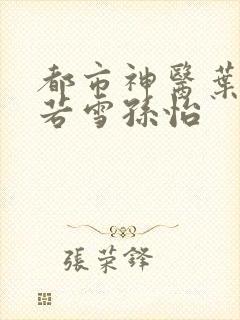 都市神醫葉
若雪孫怡
張荣鐸